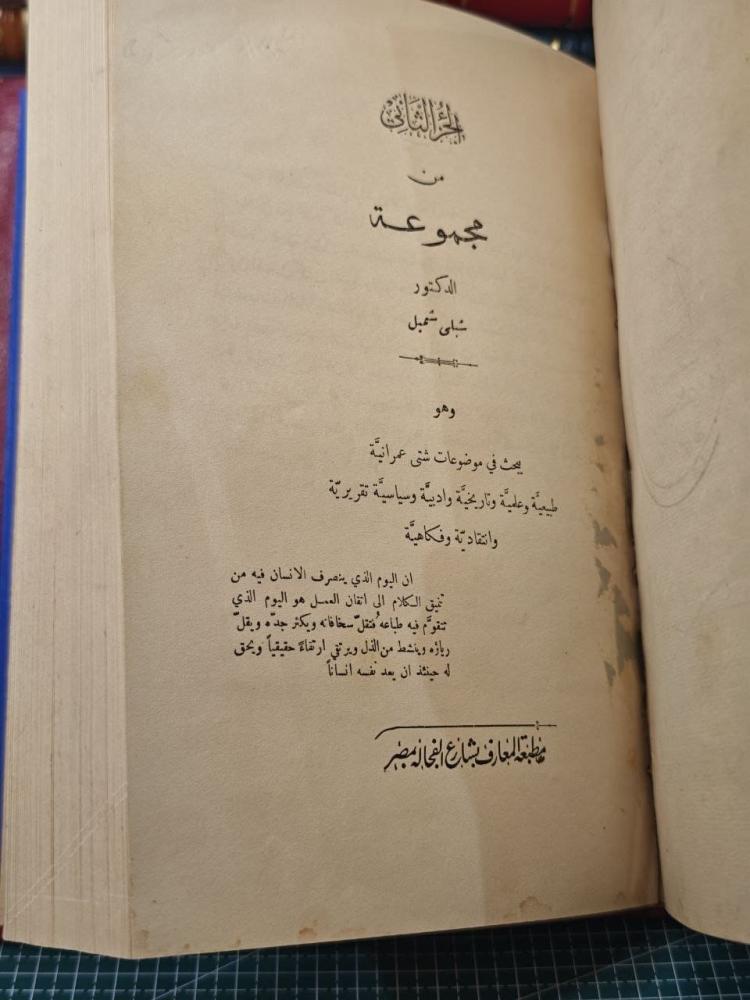 الجزء الثاني
من
مجموعة
الدكتور
شبلي شميل
وهو
يبحث في موضوعات شتى عمرانيَّة
طبيعيَّة وعلميَّة وتاريخيَّة وادبيَّة وسياسيَّة تقريريّة
وانتقاديّة وفكاهيَّة
ان اليوم الذي ينصرف الانسان فيه من
تنميق الكلام الى اتقان العمل هو اليوم الذي
تتقوَّم فيه طباعه فتقلّ سخافاته ويكثر جدّه ويقلّ
رياؤه وينشط من الذل ويرتقي ارتقاءً حقيقياً ويحق
له حينئذ ان يعد نفسه انساناً
مطبعة المعارف بشارع الفجالة بمصر